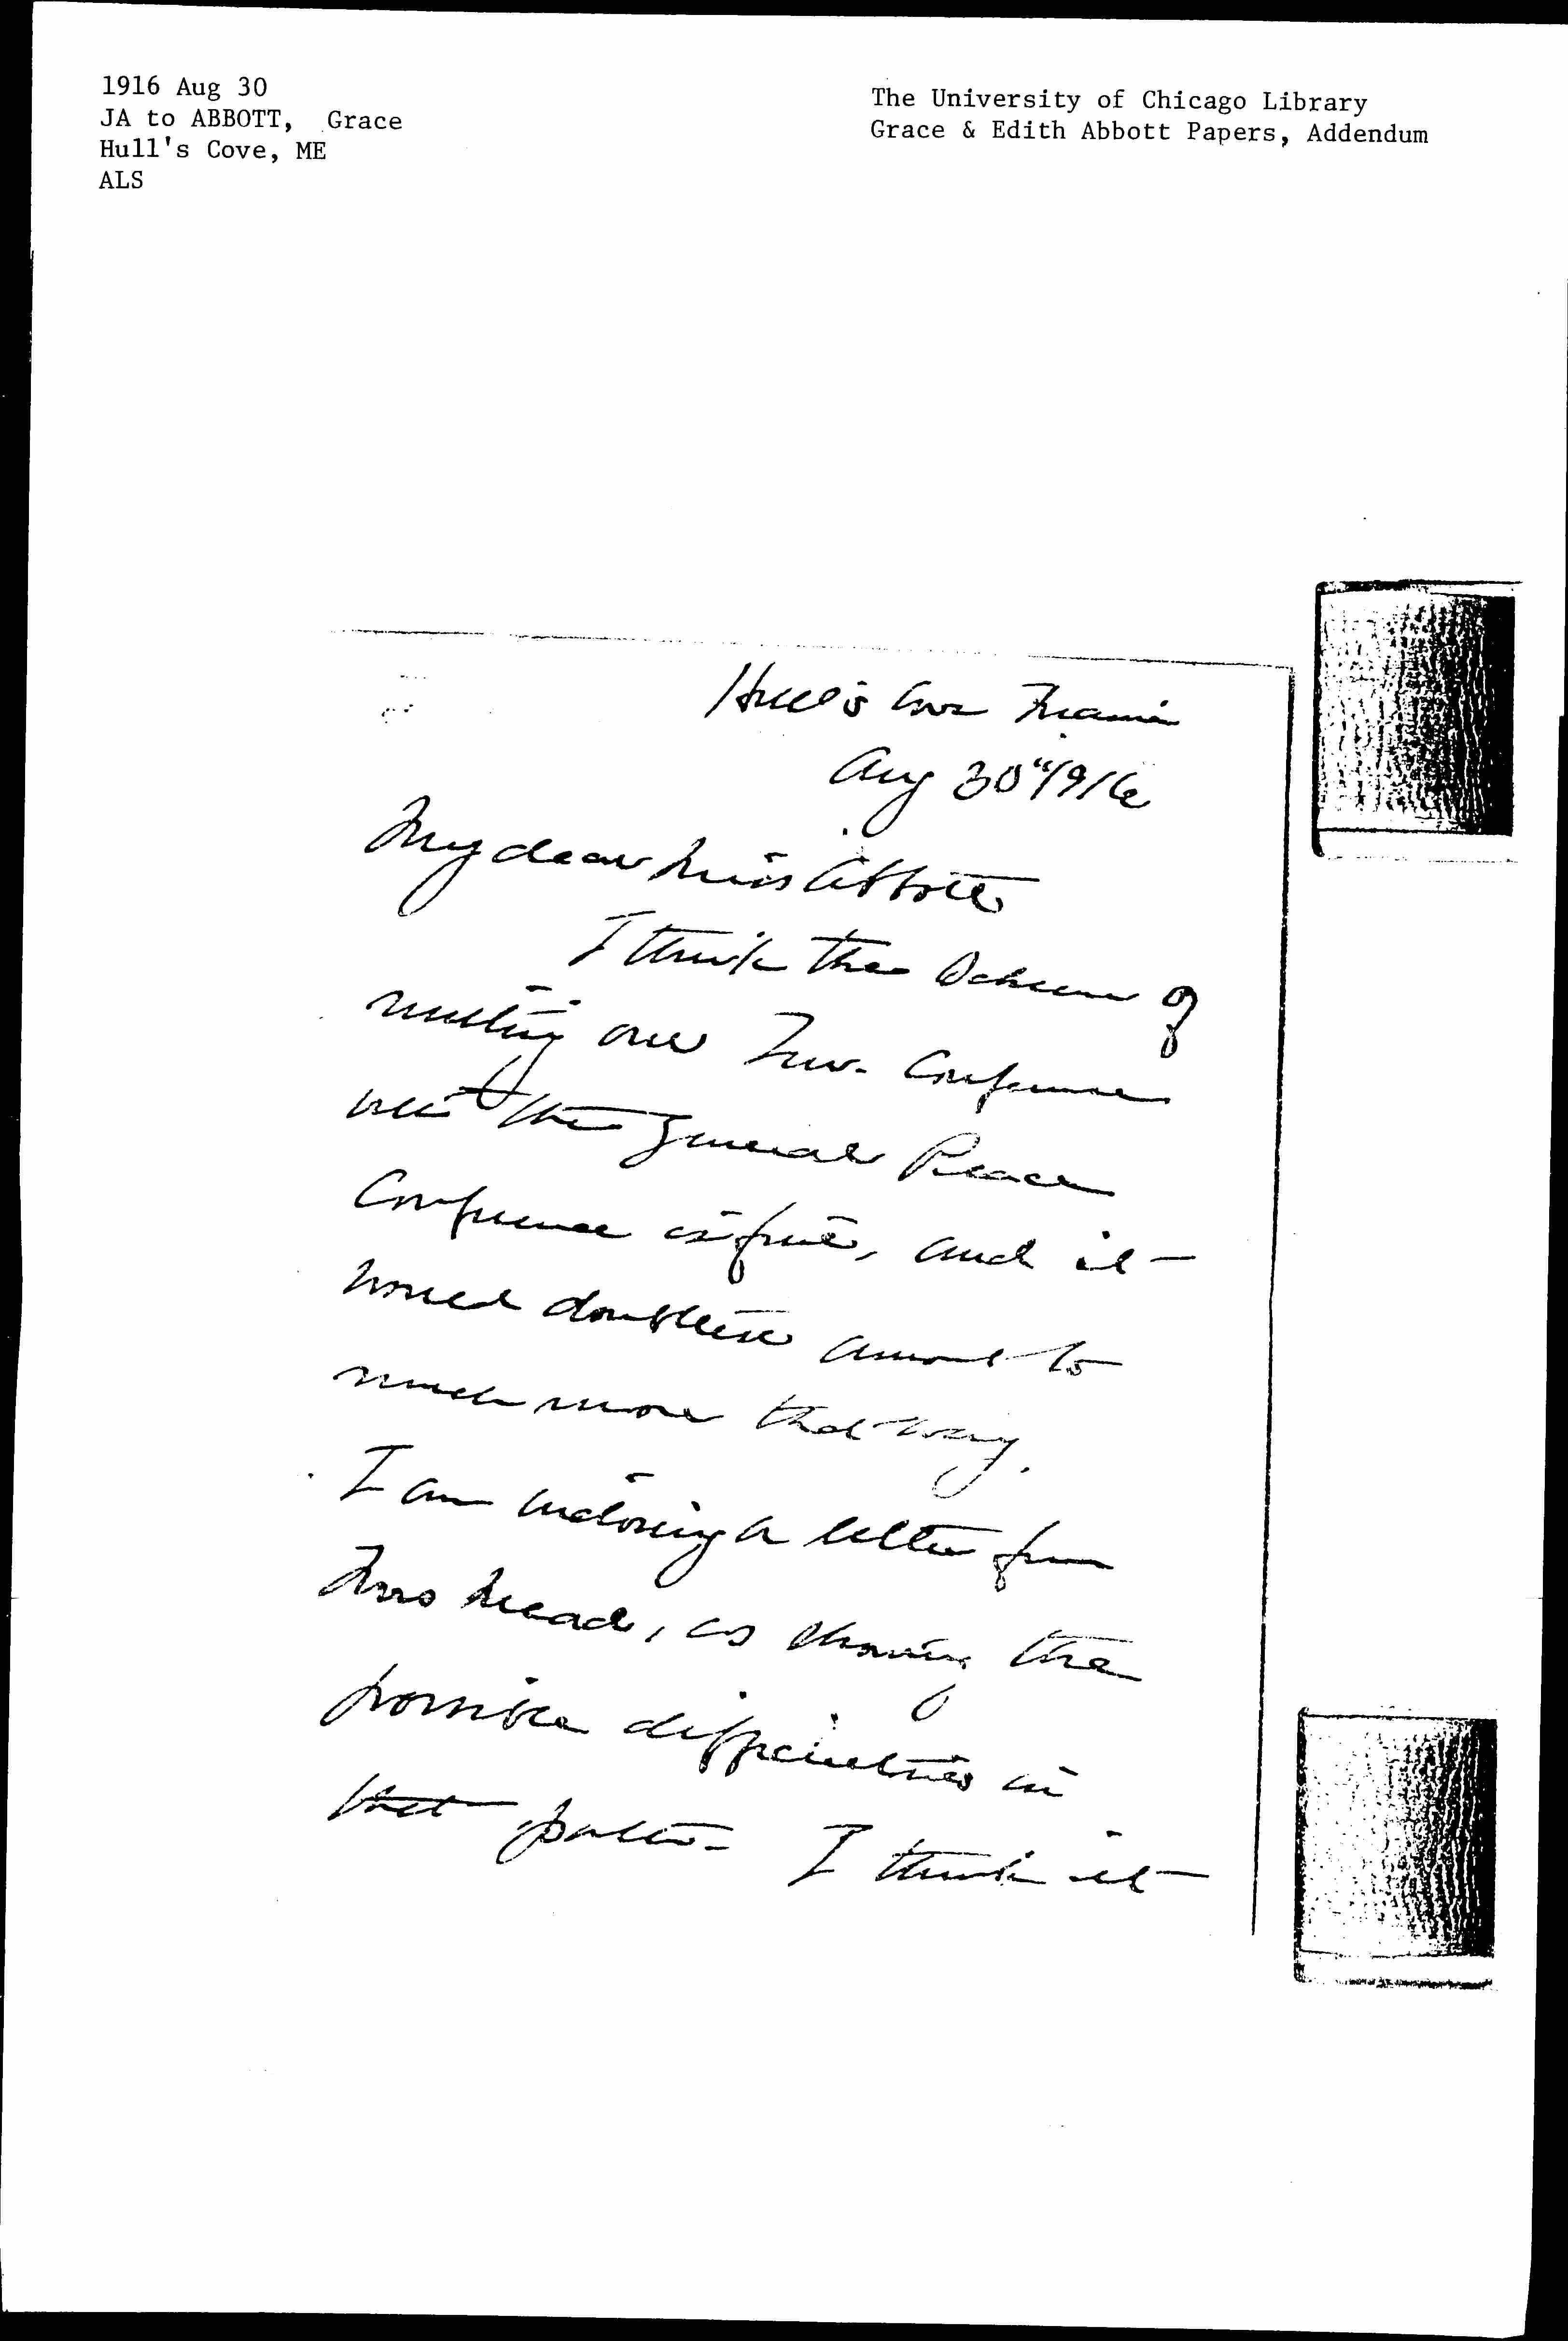 1916 Aug 30
JA to ABBOTT, Grace
Hull's Cove, ME
ALS
The University of Chicago Library
Grace & Edith Abbott Papers, Addendum
Hull's Cove Maine
Aug 30" 1916
My dear Miss Abbott
I think the scheme of
uniting our Conference
with the general Peace
Conference is fine, and it
would doubtless amount to
much more that way.
I am inclosing a letter from
Mrs Mead, as showing the
possible difficulties in
that path. I think it